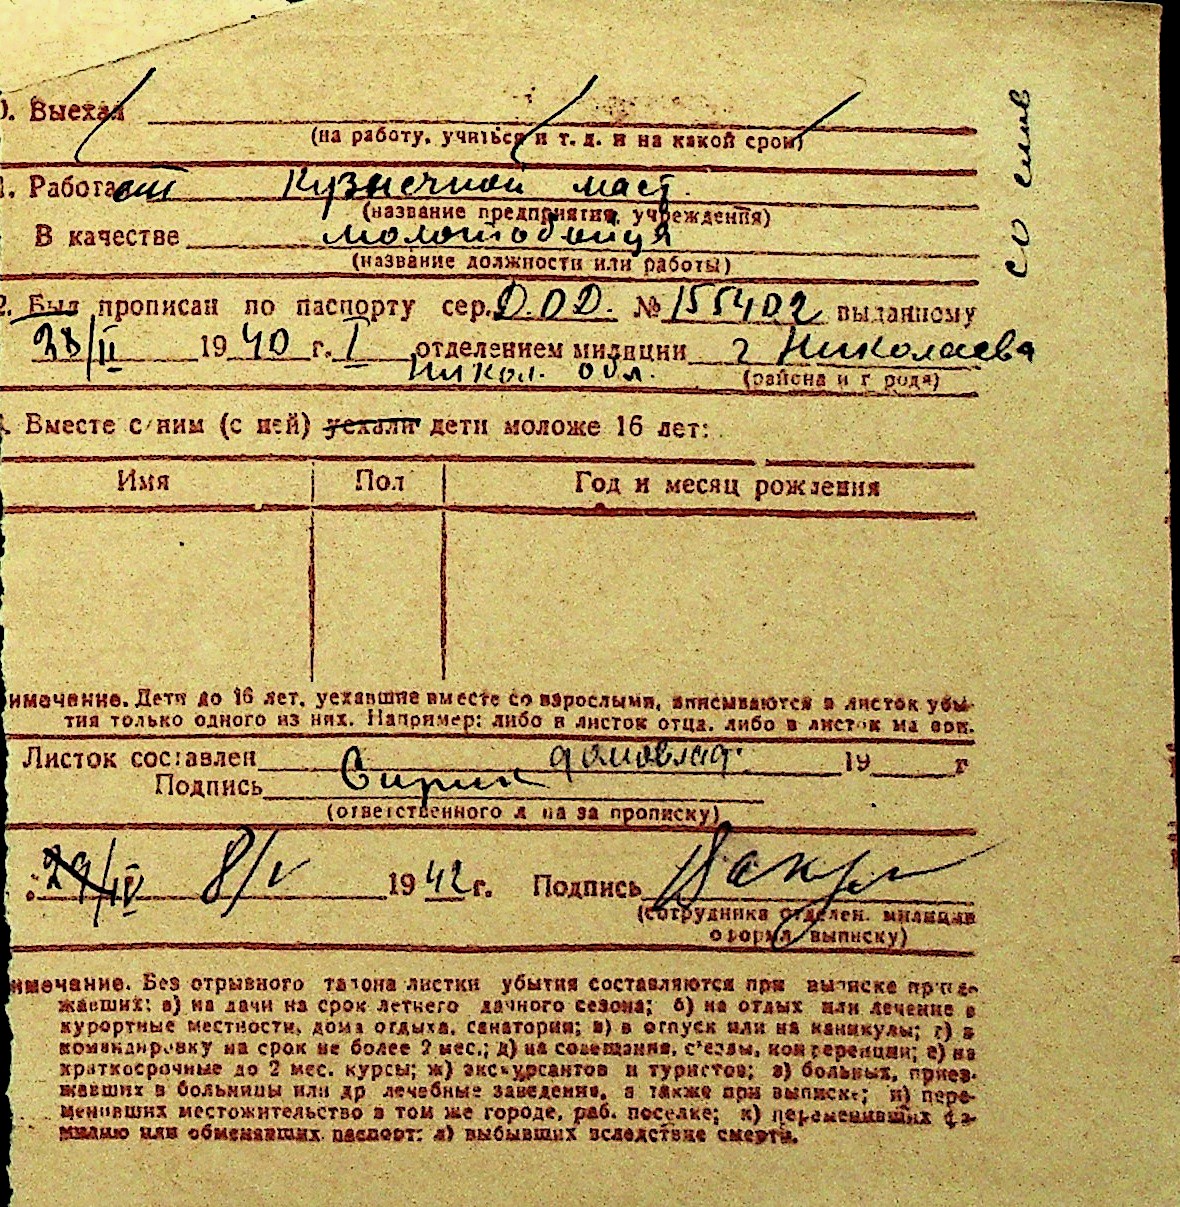 0. Выехал
(на работу, учиться и т. д. и на какой срок)
1. Работает Кузнечной маст.
(название предприятия, учреждения)
В качестве молотобойця
(название должности или работы)
2. Был прописан по паспорту сер. Д.О.Д. № 155402 выданному
28/II 1940 г. I отделением милиции г Николаева
Никол. обл. (района и города)
Вместе с ним (с ней) уехали дети моложе 16 лет:
Имя Пол Год и месяц рождения
имечение. Дети до 16 лет, уехавшие вместе со взрослыми, вписываются в листок убы-
тия только одного из них. Например: либо в листок отца, либо в листок ма ери.
Листок составлен домовлад. 19 г
Подпись
(ответственного л ца за прописку)
29/IV 8/V 1942 г. Подпись
(сотрудника отделен. милиции
оформ. выписку)
имечание. Без отрывного талона листки убытия составляются при выписке приез-
жавших: а) на дачи на срок летнего дачного сезона; б) на отдых или лечение в
курортные местности, дома отдыха, санатории; в) в отпуск или на каникулы; г) в
командировку на срок не более 2 мес.; д) на совещания, с'езды, конференции; е) на
краткосрочные до 2 мес. курсы; ж) экскурсантов и туристов; з) больных, приез-
жавших в больницы или др лечебные заведения, а также при выписке; и) пере-
менивших местожительство в том же городе, раб. поселке; к) переменивших фа-
милию или обменявших паспорт: л) выбывших вследствие смерти.
со слов